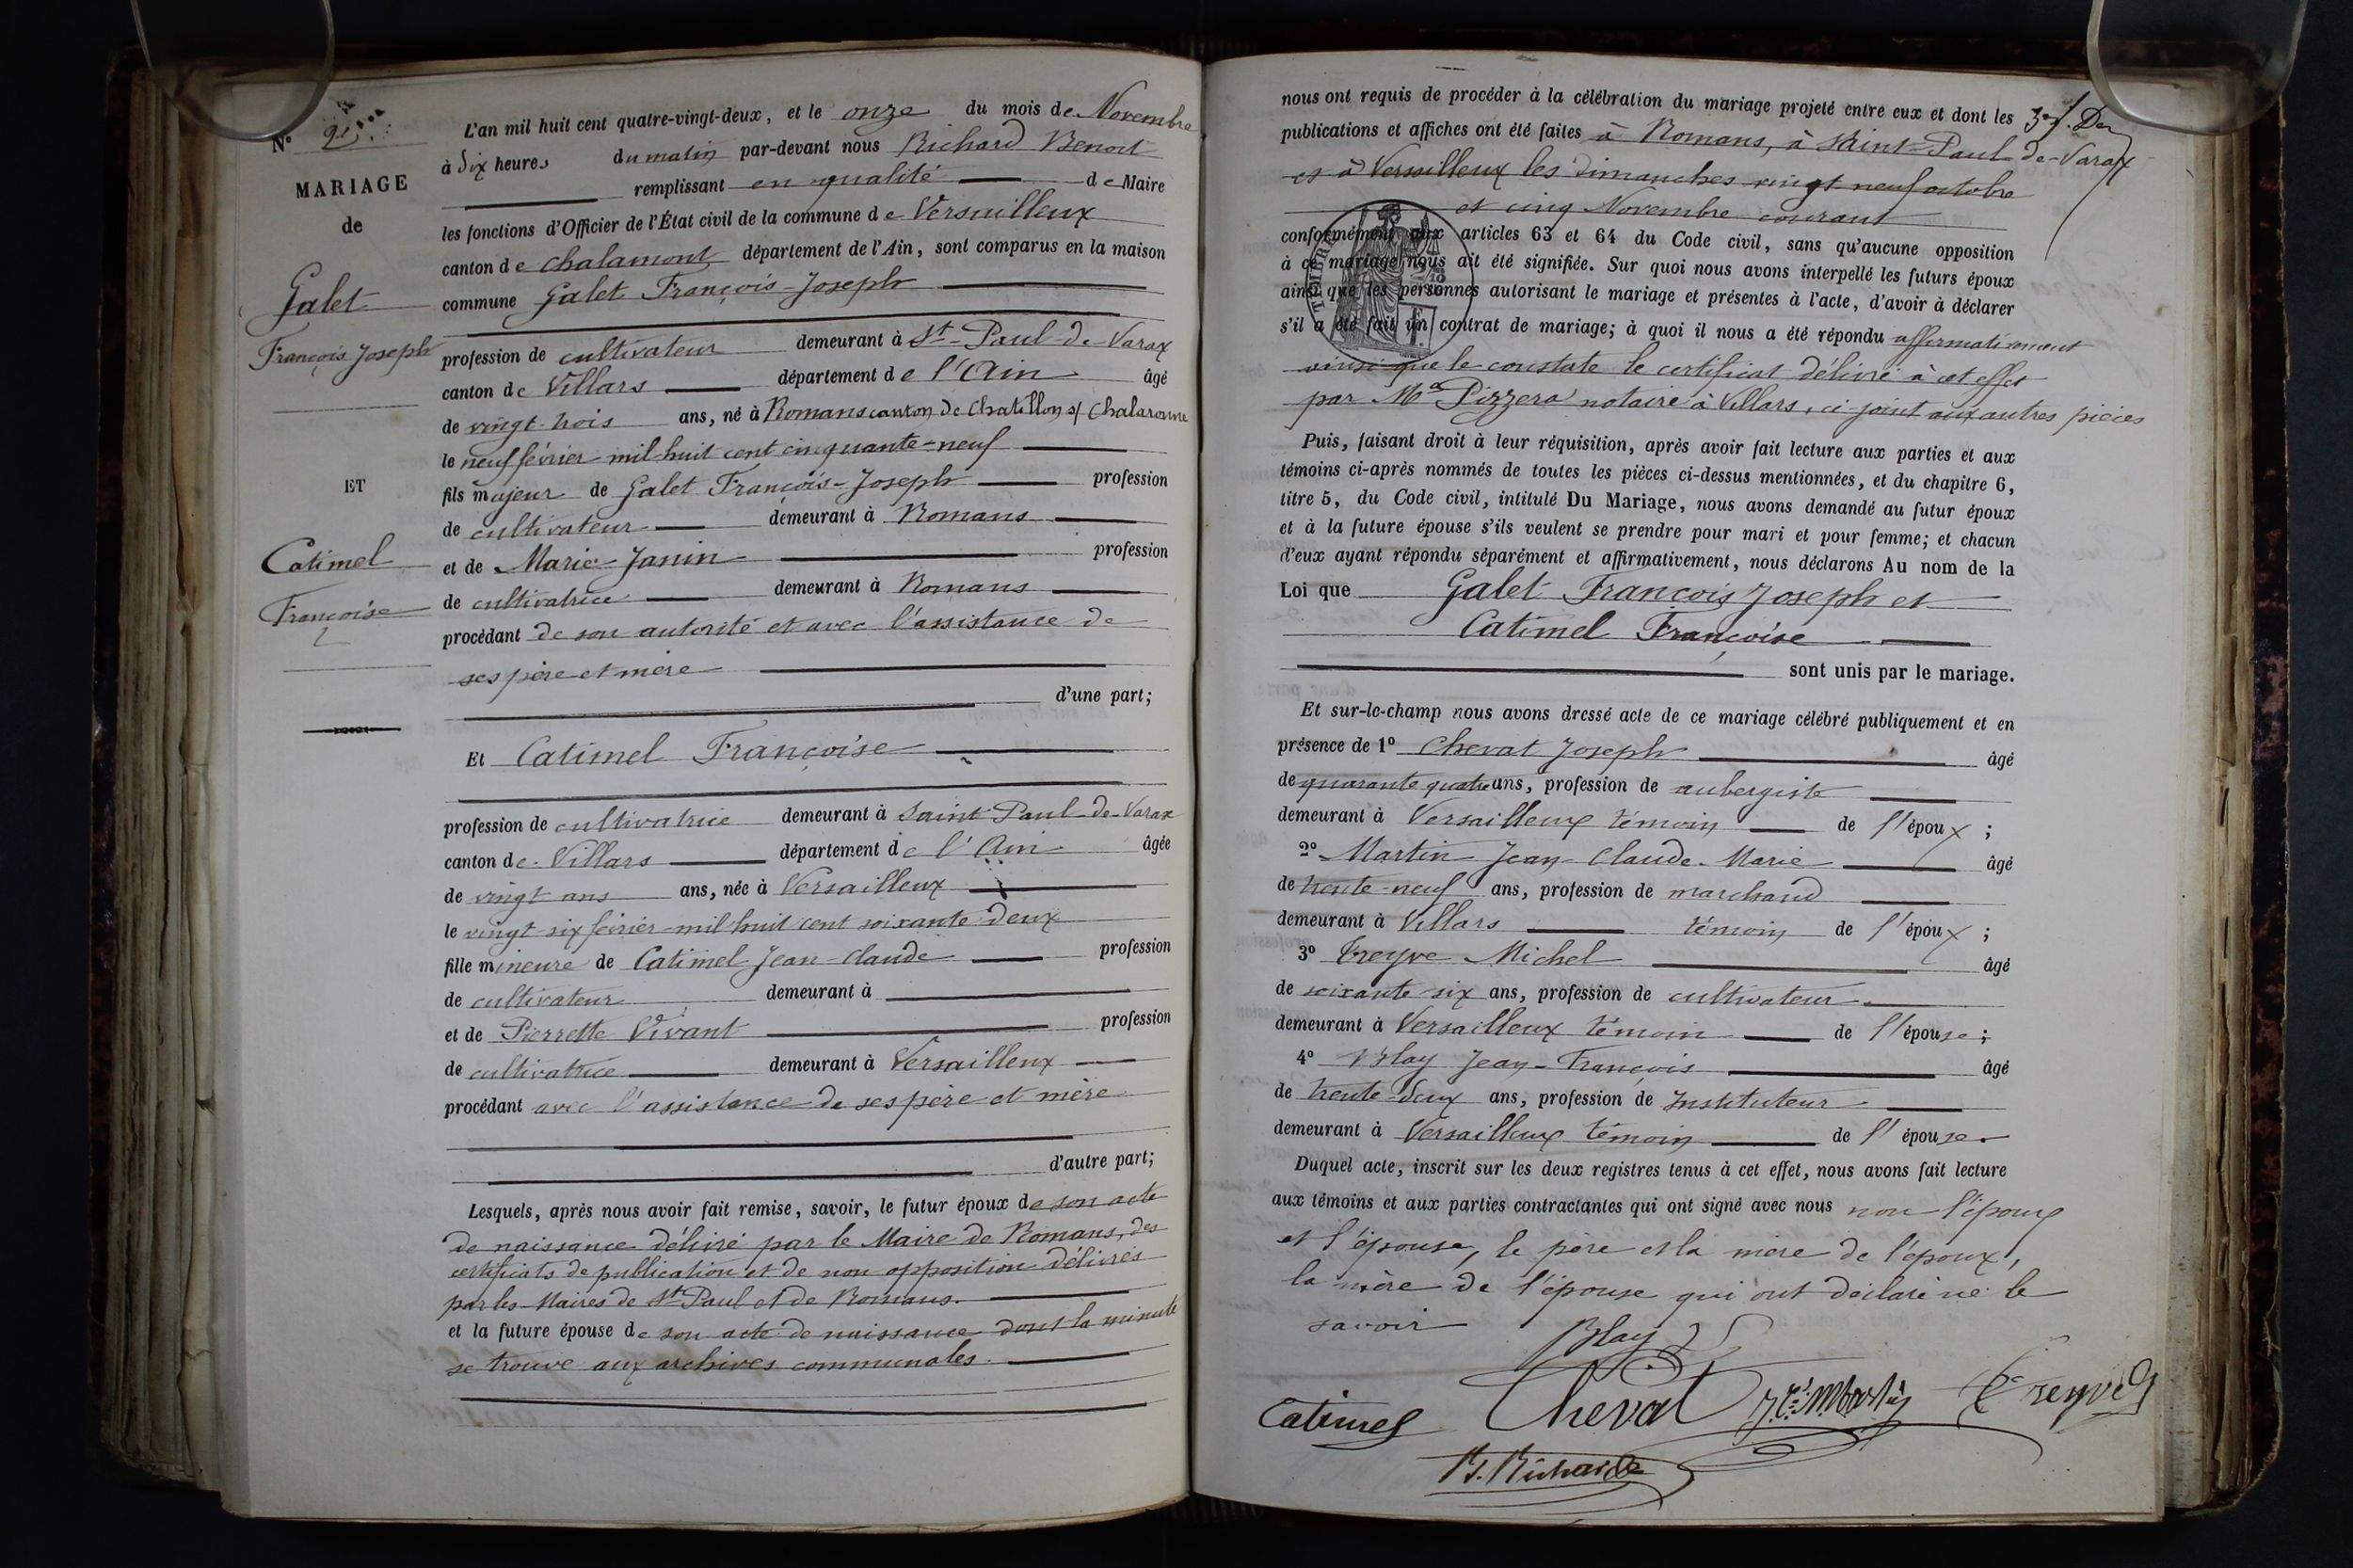 N° 9
MARIAGE
de
Galet
François Joseph
ET
Catimel
Françoise
L'an mil huit cent quatre-vingt-deux, et le onze du mois de Novembre
à dix heures du matin par-devant nous Richard Benoit
remplissant en qualité de Maire
les fonctions d'Officier de l'État civil de la commune de Versailleux
canton de chalamont département de l'Ain, sont comparus en la maison
commune Galet François-Joseph
profession de cultivateur demeurant à St-Paul-de-Varax
canton de Villars département de l'Ain âgé
de vingt-trois ans, né à Romans canton de Chatillon s/ Chalaronne
le neuf février mil huit cent cinquante-neuf
fils majeur de Galet François-Joseph profession
de cultivateur demeurant à Romans
et de Marie Janin profession
de cultivatrice demeurant à Romans
procédant de son autorité et avec l'assistance de
ses père et mère
d'une part;
Et Catimel Françoise
profession de cultivatrice demeurant à Saint-Paul-de-Varax
canton de Villars département de l'Ain âgée
de vingt ans ans, née à Versailleux
le vingt-six février mil huit cent soixante deux
fille mineure de Catimel Jean-Claude profession
de cultivateur demeurant à
et de Pierrette Vivant profession
de cultivatrice demeurant à Versailleux
procédant avec l'assistance de ses père et mère
d'autre part;
Lesquels, après nous avoir fait remise, savoir, le futur époux de son acte
de naissance délivré par le Maire de Romans, des
certificats de publication et de non opposition délivrés
par les Maires de St Paul et de Romans.
et la future épouse de son acte de naissance dont la minute
se trouve aux archives communales.
nous ont requis de procéder à la célébration du mariage projeté entre eux et dont les
publications et affiches ont été faites à Romans, à Saint-Paul-de-Varax
et à Versailleux les dimanches vingt neuf octobre
et cinq Novembre courant
conformément aux articles 63 et 64 du Code civil, sans qu'aucune opposition
à ce mariage nous ait été signifiée. Sur quoi nous avons interpellé les futurs époux
ainsi que les personnes autorisant le mariage et présentes à l'acte, d'avoir à déclarer
s'il a été fait un contrat de mariage; à quoi il nous a été répondu affirmativement
ainsi que le constate le certificat délivré à cet effet
par Me Pizzera notaire à Villars, ci-joint aux autres pièces
Puis, faisant droit à leur réquisition, après avoir fait lecture aux parties et aux
témoins ci-après nommés de toutes les pièces ci-dessus mentionnées, et du chapitre 6,
titre 5, du Code civil, intitulé Du Mariage, nous avons demandé au futur époux
et à la future épouse s'ils veulent se prendre pour mari et pour femme; et chacun
d'eux ayant répondu séparément et affirmativement, nous déclarons Au nom de la
Loi que Galet François Joseph et
Catimel Françoise
sont unis par le mariage.
Et sur-le-champ nous avons dressé acte de ce mariage célébré publiquement et en
présence de 1° Cheval Joseph âgé
de quarante quatre ans, profession de aubergiste
demeurant à Versailleux témoin de l'époux;
2° Martin Jean-Claude-Marie âgé
de trente-neuf ans, profession de marchand
demeurant à Villars témoin de l'époux;
3° Treyve Michel âgé
de soixante-six ans, profession de cultivateur
demeurant à Versailleux témoin de l'épouse;
4° Blay Jean-François âgé
de trente-deux ans, profession de Instituteur
demeurant à Versailleux témoin de l'épouse.
Duquel acte, inscrit sur les deux registres tenus à cet effet, nous avons fait lecture
aux témoins et aux parties contractantes qui ont signé avec nous non l'époux
et l'épouse, le père et la mère de l'époux,
la mère de l'épouse qui ont déclaré ne le
savoir
Blay
Catimel Cheval J. C. M Martin Treyve
B. Richard